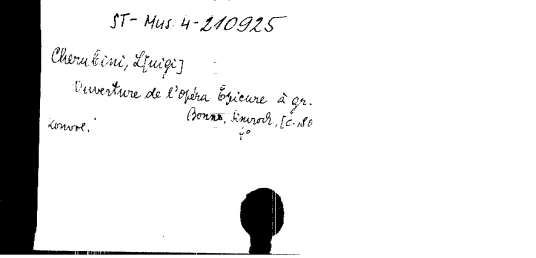 ST-Mus. 4-210925
Cherubini, L[uigi]
Ouverture de l'opéra Epicure à gr.
Bonn, Simrock, [c.
Konvol.
4°